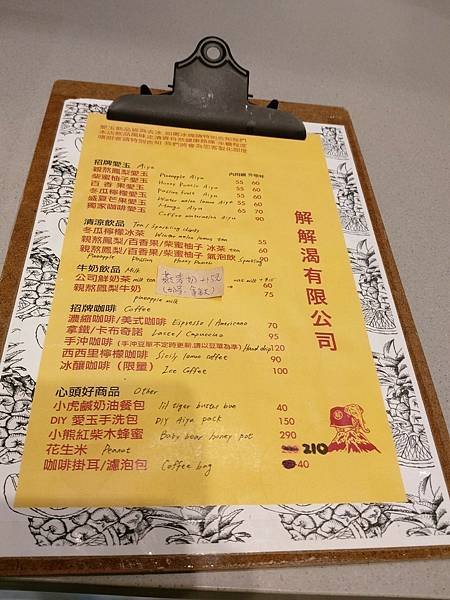 愛玉飲品皆為去冰,如需冰塊請特別告知我們
本店飲品風味走清爽自然健康路線 半糖程度
嗜甜者請特別告知 我們將會為您客製化甜度
招牌愛玉 Aiyu 內用杯 外帶杯
親熬鳳梨愛玉 Pineapple Aiyu 55 60
柴蜜柚子愛玉 Honey Pomelo Aiyu 55 60
百香果愛玉 Passion fruit Aiyu 55 60
冬瓜檸檬愛玉 Winter melon lemon Aiyu 55 60
盛夏芒果愛玉 Mango Aiyu 65 70
獨家咖啡愛玉 Coffee watermelon Aiyu 90
清涼飲品 Tea / Sparkling drinks
冬瓜檸檬冰茶 Winter melon lemon tea 55
親熬鳳梨/百香果/柴蜜柚子 冰茶 tea 60
親熬鳳梨/百香果/柴蜜柚子 氣泡飲 90
Pineapple Passion Honey Pomelo Sparkling
牛奶飲品 Milk
公司鮮奶茶 milk tea 60
親熬鳳梨牛奶 75
pineapple milk
燕麥奶+15元
招牌咖啡 Coffee
濃縮咖啡/美式咖啡 Espresso / Americano 70
拿鐵/卡布奇諾 Latte / Capuccino 95
手沖咖啡 (手沖豆單不定時更新,請以豆單為準) Hand drip 120
西西里檸檬咖啡 Sicily lemon coffee 90
冰釀咖啡 (限量) Ice Coffee 100
心頭好商品 Other
小虎鹹奶油餐包 lil tiger butter bun 40
DIY 愛玉手洗包 DIY Aiyu pack 150
小熊紅柴木蜂蜜 Baby bear honey pot 290
花生米 Peanut 210
咖啡掛耳/濾泡包 Coffee bag 40
解解渴有限公司